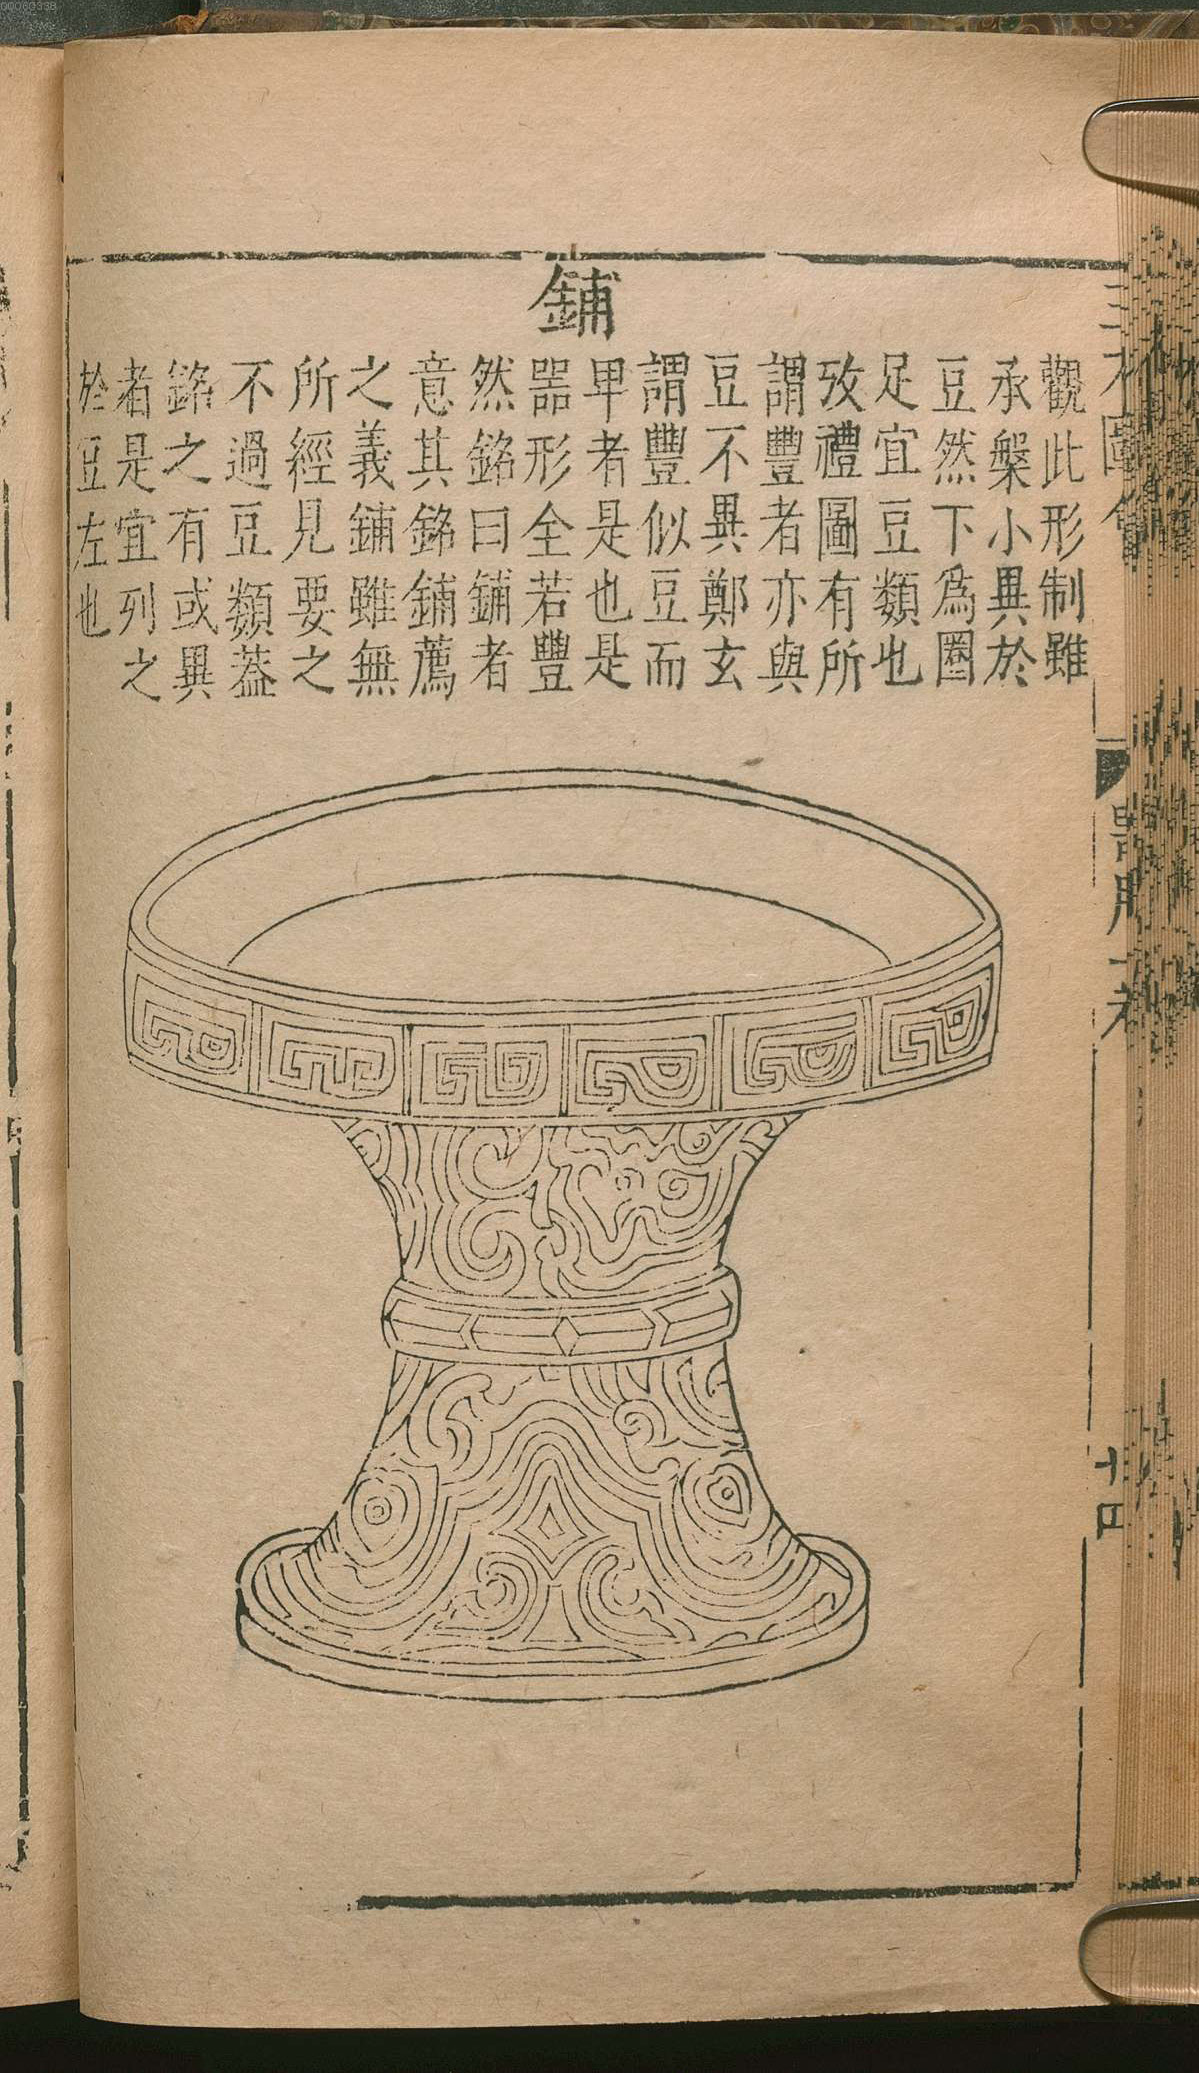 00060338
鋪
觀此形制雖
承槃小異於
豆然下爲圈
足宜豆類也
攷禮圖有所
謂豐者亦與
豆不異鄭玄
謂豐似豆而
卑者是也是
器形全若豐
然銘曰鋪者
意其銘鋪薦
之義鋪雖無
所經見要之
不過豆類葢
銘之有或異
者是宜列之
於豆左也
三才圖會
器用一卷
十四